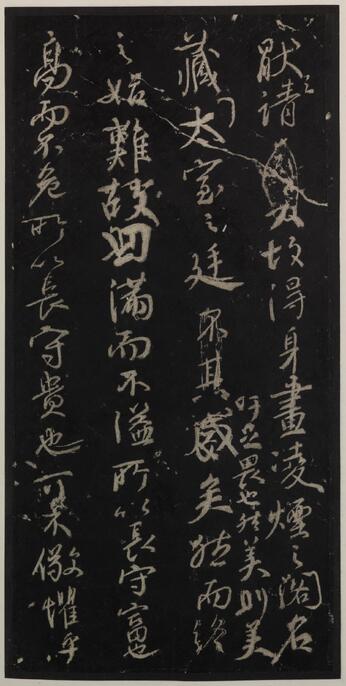 厭之請故得身畫凌煙之閣名
吁足畏也然美則美
藏太室之廷其盛矣然而終
之始難故曰滿而不溢所以長守富也
高而不危所以長守貴也可不儆懼乎